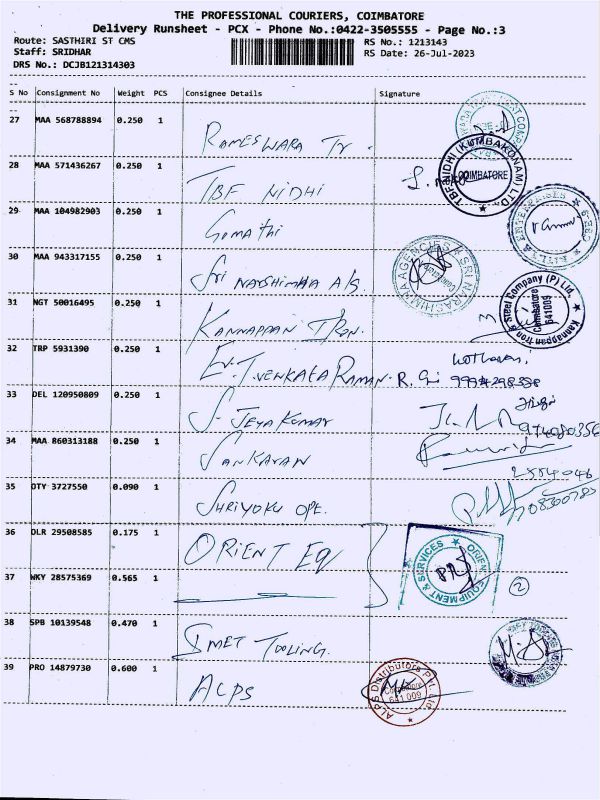 THE PROFESSIONAL COURIERS, COIMBATORE
Delivery Runsheet - PCX - Phone No.:0422-3505555 - Page No.:3
Route: SASTHIRI ST CMS
RS No.: 1213143
Staff: SRIDHAR
RS Date: 26-Jul-2023
DRS No.: DCJB121314303
S No Consignment No Weight PCS Consignee Details Signature
27 MAA 568788894 0.250 1 RAMESWARA Tr.
28 MAA 571436267 0.250 1 TBF NIDHI
TBF NIDHI (KUMBAKONAM) LTD COIMBATORE
29 MAA 104982903 0.250 1 Gomathi
ENTERPRISES
30 MAA 943317155 0.250 1 Sri NARSHIMHA A/S.
SRI NARASHIMMA AGENCIES
31 NGT 50016495 0.250 1 KANNAPPAN IRON.
Kannappan Iron & Steel Company (P) Ltd, Coimbatore 641009
32 TRP 5931390 0.250 1 Er. T. VENKATA RAMAN. R.
33 DEL 120950809 0.250 1 S. JEYA KUMAR
34 MAA 860313188 0.250 1 SANKARAN
2554046
35 OTY 3727550 0.090 1 SHRIYOKU OPE.
36 DLR 29508585 0.175 1 ORIENT EQ
ORIENT EQUIPMENT & SERVICES
37 WKY 28575369 0.565 1
2
38 SPB 10139548 0.470 1 IMET TOOLING.
39 PRO 14879730 0.600 1 ALPS
ALPS Distributors Pvt. Ltd Coimbatore 641 009